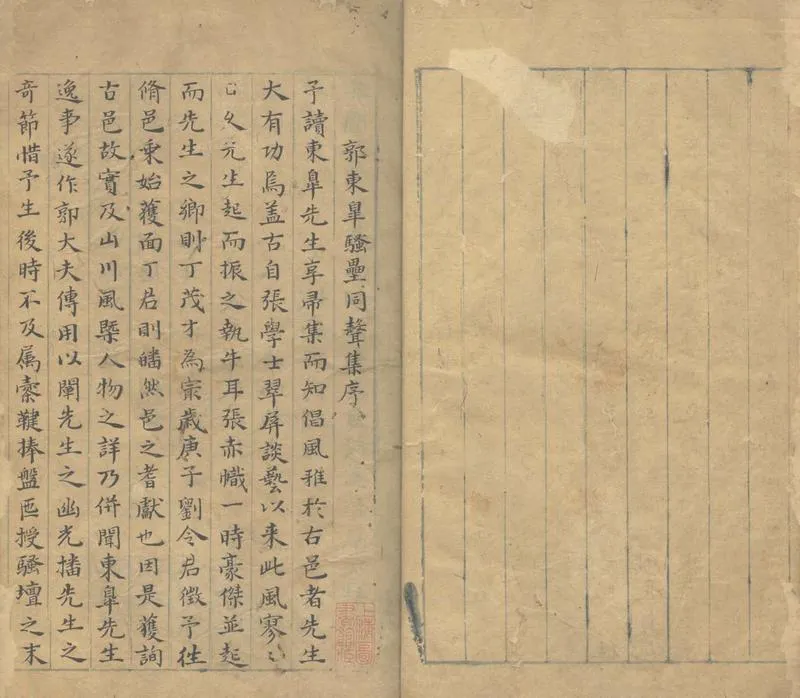 郭東皐騷壘同聲集序
予讀東皐先生享帚集而知倡風雅於古邑者先生
大有功焉盖古自張學士翠屏談藝以来此風寥〻
已久先生起而振之執牛耳張赤幟一時豪傑並起
而先生之鄉則丁茂才為宗歲庚子劉令君徵予徃
脩邑乗始獲面丁君則皤然邑之耆獻也因是獲詢
古邑故實及山川風槩人物之詳乃併聞東皐先生
逸事遂作郭大夫傳用以闡先生之幽光播先生之
奇節惜予生後時不及属櫜鞬捧盤匜授騷壇之末